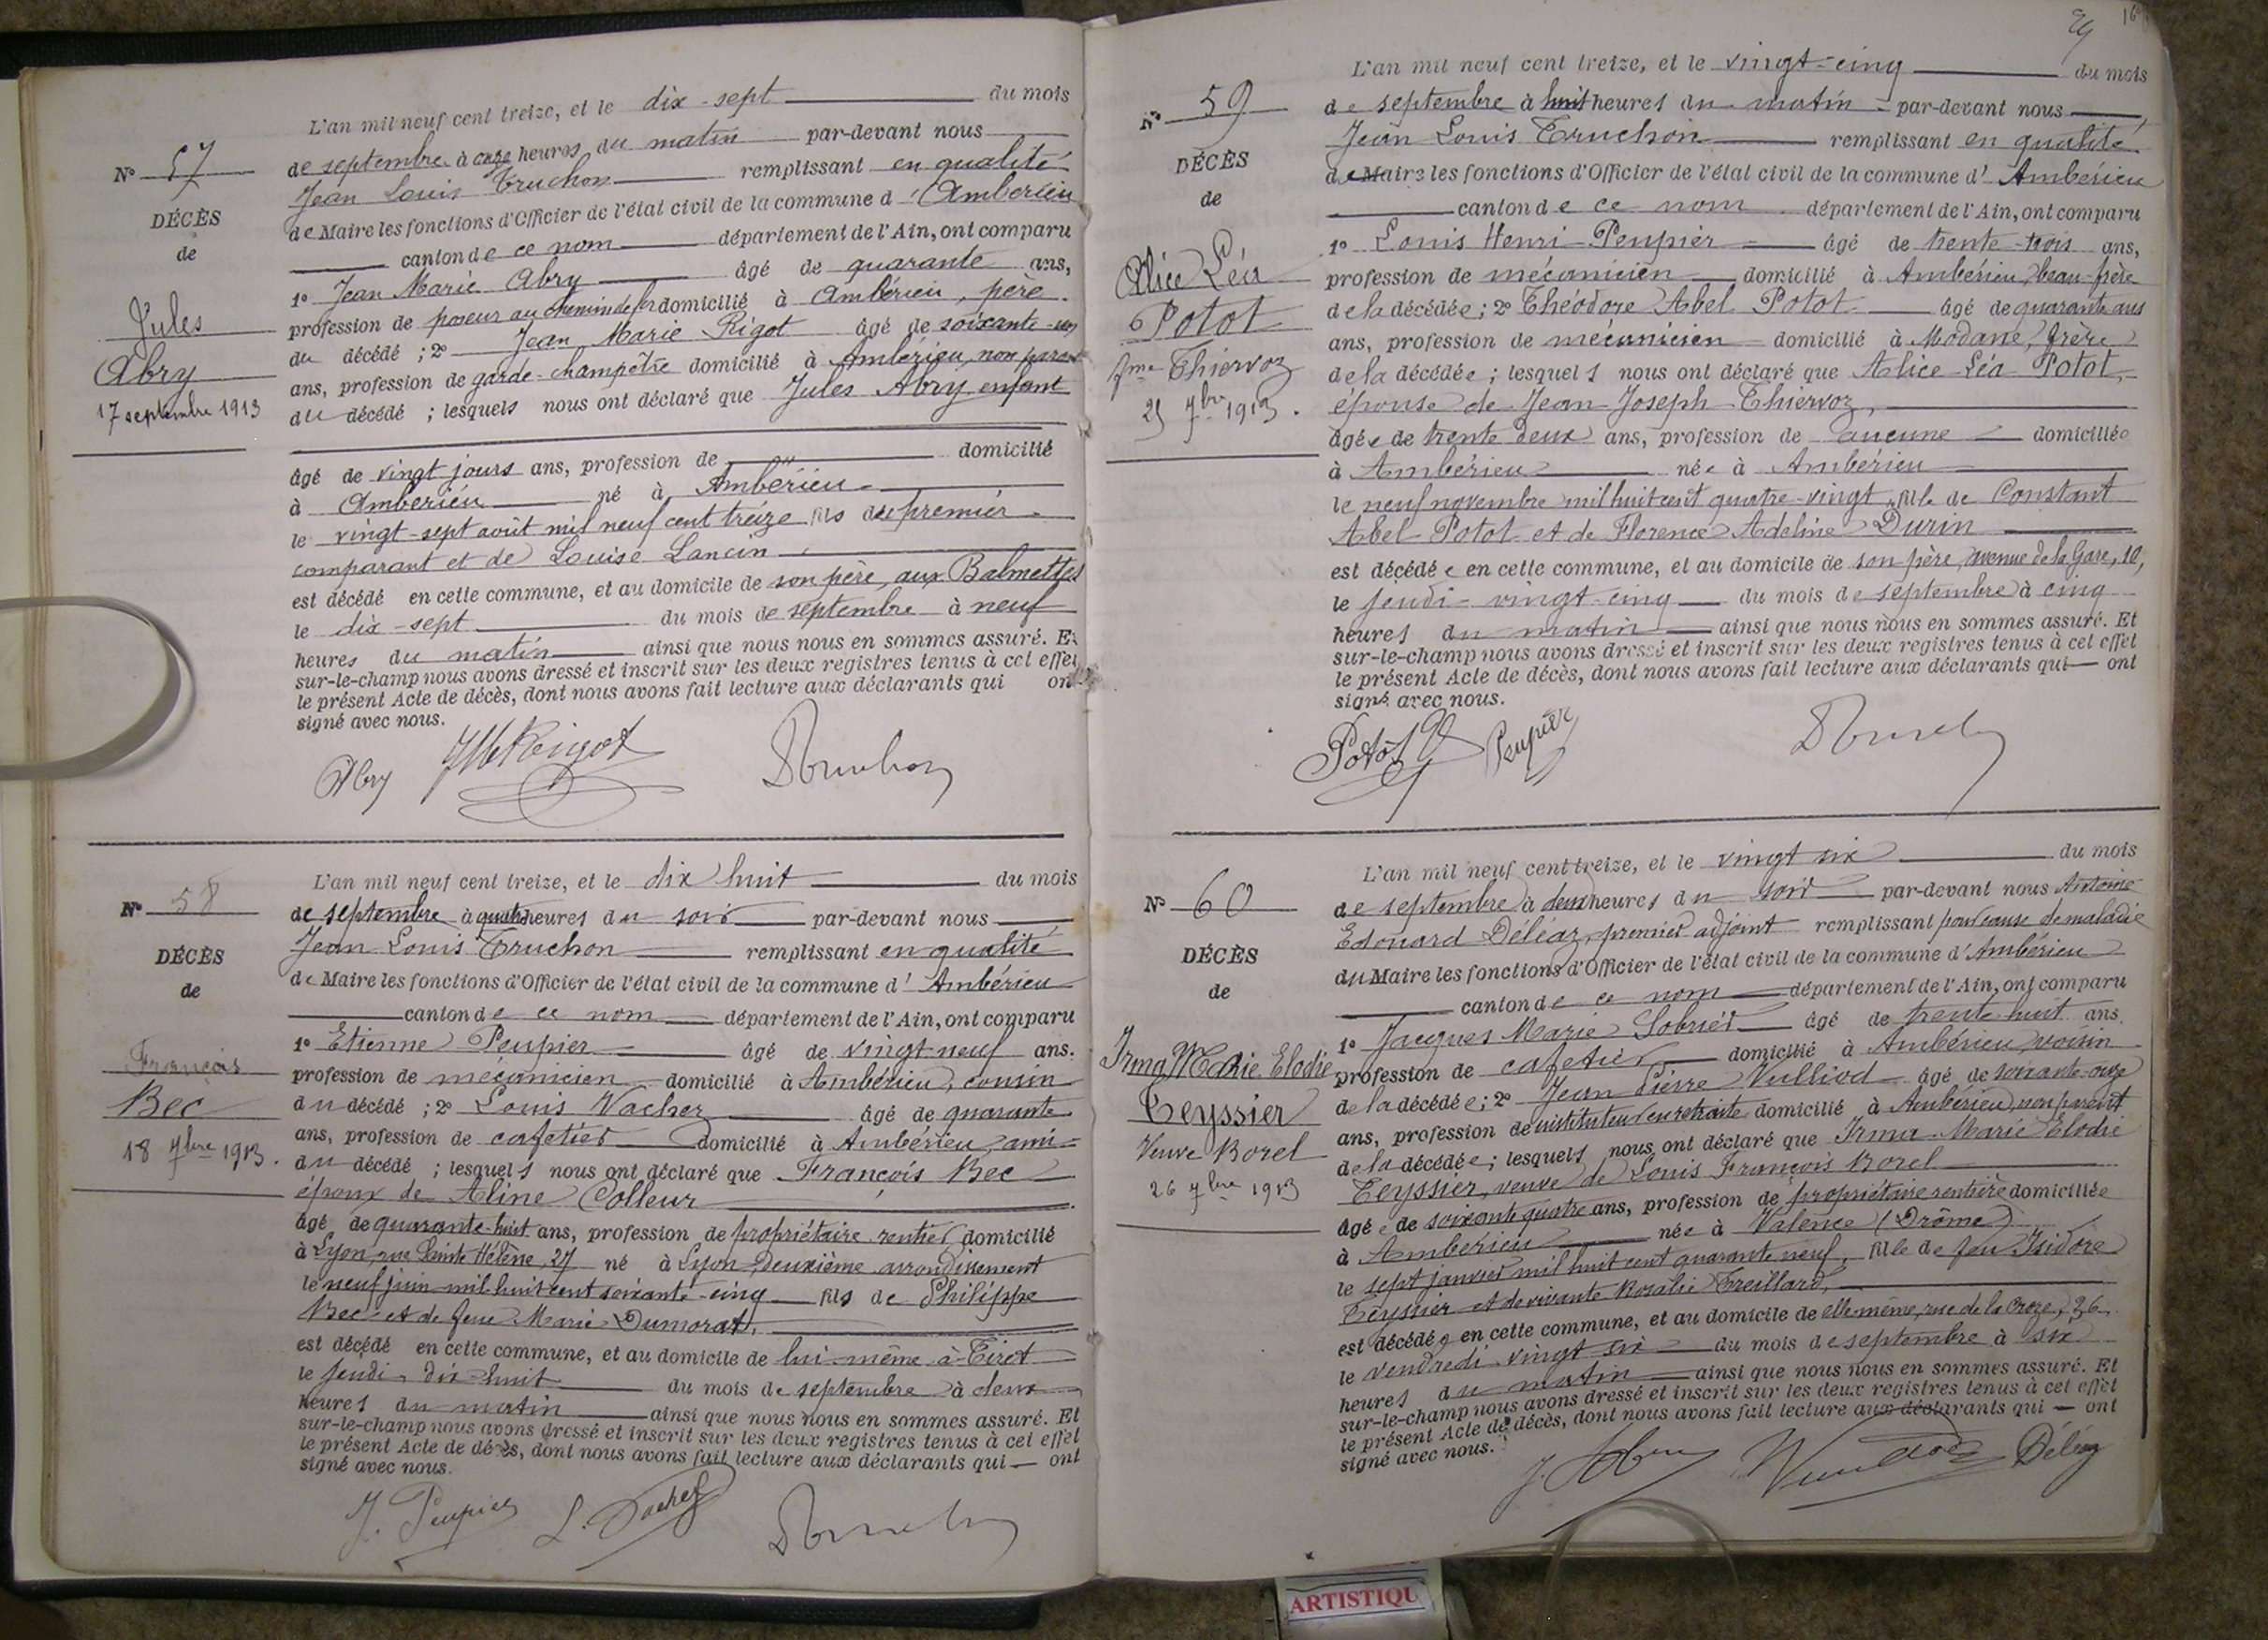 L'an mil neuf cent treize, et le dix-sept du mois
de septembre à onze heures du matin par-devant nous
Jean Louis Truchon remplissant en qualité
de Maire les fonctions d'Officier de l'état civil de la commune d'Ambérieu
canton de ce nom département de l'Ain, ont comparu
1º Jean Marie Abry âgé de quarante ans,
profession de poseur au chemin de fer domicilié à Ambérieu, père
du décédé ; 2º Jean Marie Rigot âgé de soixante-un
ans, profession de garde-champêtre domicilié à Ambérieu, non parent
du décédé ; lesquels nous ont déclaré que Jules Abry enfant
âgé de vingt jours ans, profession de domicilié
à Ambérieu né à Ambérieu
le vingt-sept août mil neuf cent treize fils du premier
comparant et de Louise Lancin
est décédé en cette commune, et au domicile de son père, aux Balmettes
le dix-sept du mois de septembre à neuf
heures du matin ainsi que nous nous en sommes assuré. Et
sur-le-champ nous avons dressé et inscrit sur les deux registres tenus à cet effet
le présent Acte de décès, dont nous avons fait lecture aux déclarants qui ont
signé avec nous.
Abry JM Rigot Truchon
Nº 57
DÉCÈS
de
Jules
Abry
17 septembre 1913
L'an mil neuf cent treize, et le dix huit du mois
de septembre à quatre heures du soir par-devant nous
Jean Louis Truchon remplissant en qualité
de Maire les fonctions d'Officier de l'état civil de la commune d'Ambérieu
canton de ce nom département de l'Ain, ont comparu
1º Etienne Peupier âgé de vingt-neuf ans.
profession de mécanicien domicilié à Ambérieu, cousin
du décédé ; 2º Louis Vacher âgé de quarante
ans, profession de cafetier domicilié à Ambérieu, ami
du décédé ; lesquels nous ont déclaré que François Bec
époux de Aline Colleur
âgé de quarante-huit ans, profession de propriétaire rentier domicilié
à Lyon, rue Sainte Hélène, 27 né à Lyon, deuxième arrondissement
le neuf juin mil huit cent soixante-cinq fils de Philippe
Bec et de feue Marie Dumorat,
est décédé en cette commune, et au domicile de lui-même à Tiret
le jeudi dix-huit du mois de septembre à deux
heures du matin ainsi que nous nous en sommes assuré. Et
sur-le-champ nous avons dressé et inscrit sur les deux registres tenus à cet effet
le présent Acte de décès, dont nous avons fait lecture aux déclarants qui ont
signé avec nous.
J. Peupier L. Vacher Truchon
Nº 58
DÉCÈS
de
François
Bec
18 7bre 1913.
L'an mil neuf cent treize, et le vingt-cinq du mois
de septembre à huit heures du matin par-devant nous
Jean Louis Truchon remplissant en qualité
de Maire les fonctions d'Officier de l'état civil de la commune d'Ambérieu
canton de ce nom département de l'Ain, ont comparu
1º Louis Henri Peupier âgé de trente-trois ans,
profession de mécanicien domicilié à Ambérieu, beau-frère
de la décédée ; 2º Théodore Abel Potot âgé de quarante ans
ans, profession de mécanicien domicilié à Modane, frère
de la décédée ; lesquels nous ont déclaré que Alice Léa Potot,
épouse de Jean Joseph Thiervoz,
âgée de trente deux ans, profession de aucune domiciliée
à Ambérieu née à Ambérieu
le neuf novembre mil huit cent quatre-vingt, fille de Constant
Abel Potot et de Florence Adeline Durin
est décédée en cette commune, et au domicile de son père, avenue de la Gare, 10,
le jeudi vingt-cinq du mois de septembre à cinq
heures du matin ainsi que nous nous en sommes assuré. Et
sur-le-champ nous avons dressé et inscrit sur les deux registres tenus à cet effet
le présent Acte de décès, dont nous avons fait lecture aux déclarants qui ont
signé avec nous.
Potot Peupier Truchon
Nº 59
DÉCÈS
de
Alice Léa
Potot
fme Thiervoz
25 7bre 1913.
L'an mil neuf cent treize, et le vingt six du mois
de septembre à deux heures du soir par-devant nous Antoine
Edouard Déléaz, premier adjoint remplissant pour cause de maladie
du Maire les fonctions d'Officier de l'état civil de la commune d'Ambérieu
canton de ce nom département de l'Ain, ont comparu
1º Jacques Marie Sobrier âgé de trente huit ans.
profession de cafetier domicilié à Ambérieu, voisin
de la décédée ; 2º Jean Pierre Vulliod âgé de soixante-onze
ans, profession de instituteur en retraite domicilié à Ambérieu, non parent
de la décédée ; lesquels nous ont déclaré que Irma Marie Elodie
Teyssier, veuve de Louis François Borel
âgée de soixante quatre ans, profession de propriétaire rentière domiciliée
à Ambérieu née à Valence (Drôme)
le sept janvier mil huit cent quarante neuf, fille de feu Isidore
Teyssier et de vivante Rosalie Treillard,
est décédée en cette commune, et au domicile de elle-même, rue de la Croze, 36
le vendredi vingt six du mois de septembre à six
heures du matin ainsi que nous nous en sommes assuré. Et
sur-le-champ nous avons dressé et inscrit sur les deux registres tenus à cet effet
le présent Acte de décès, dont nous avons fait lecture aux déclarants qui ont
signé avec nous.
Déléaz
Nº 60
DÉCÈS
de
Irma Marie Elodie
Teyssier
Veuve Borel
26 7bre 1913
ARTISTIQU